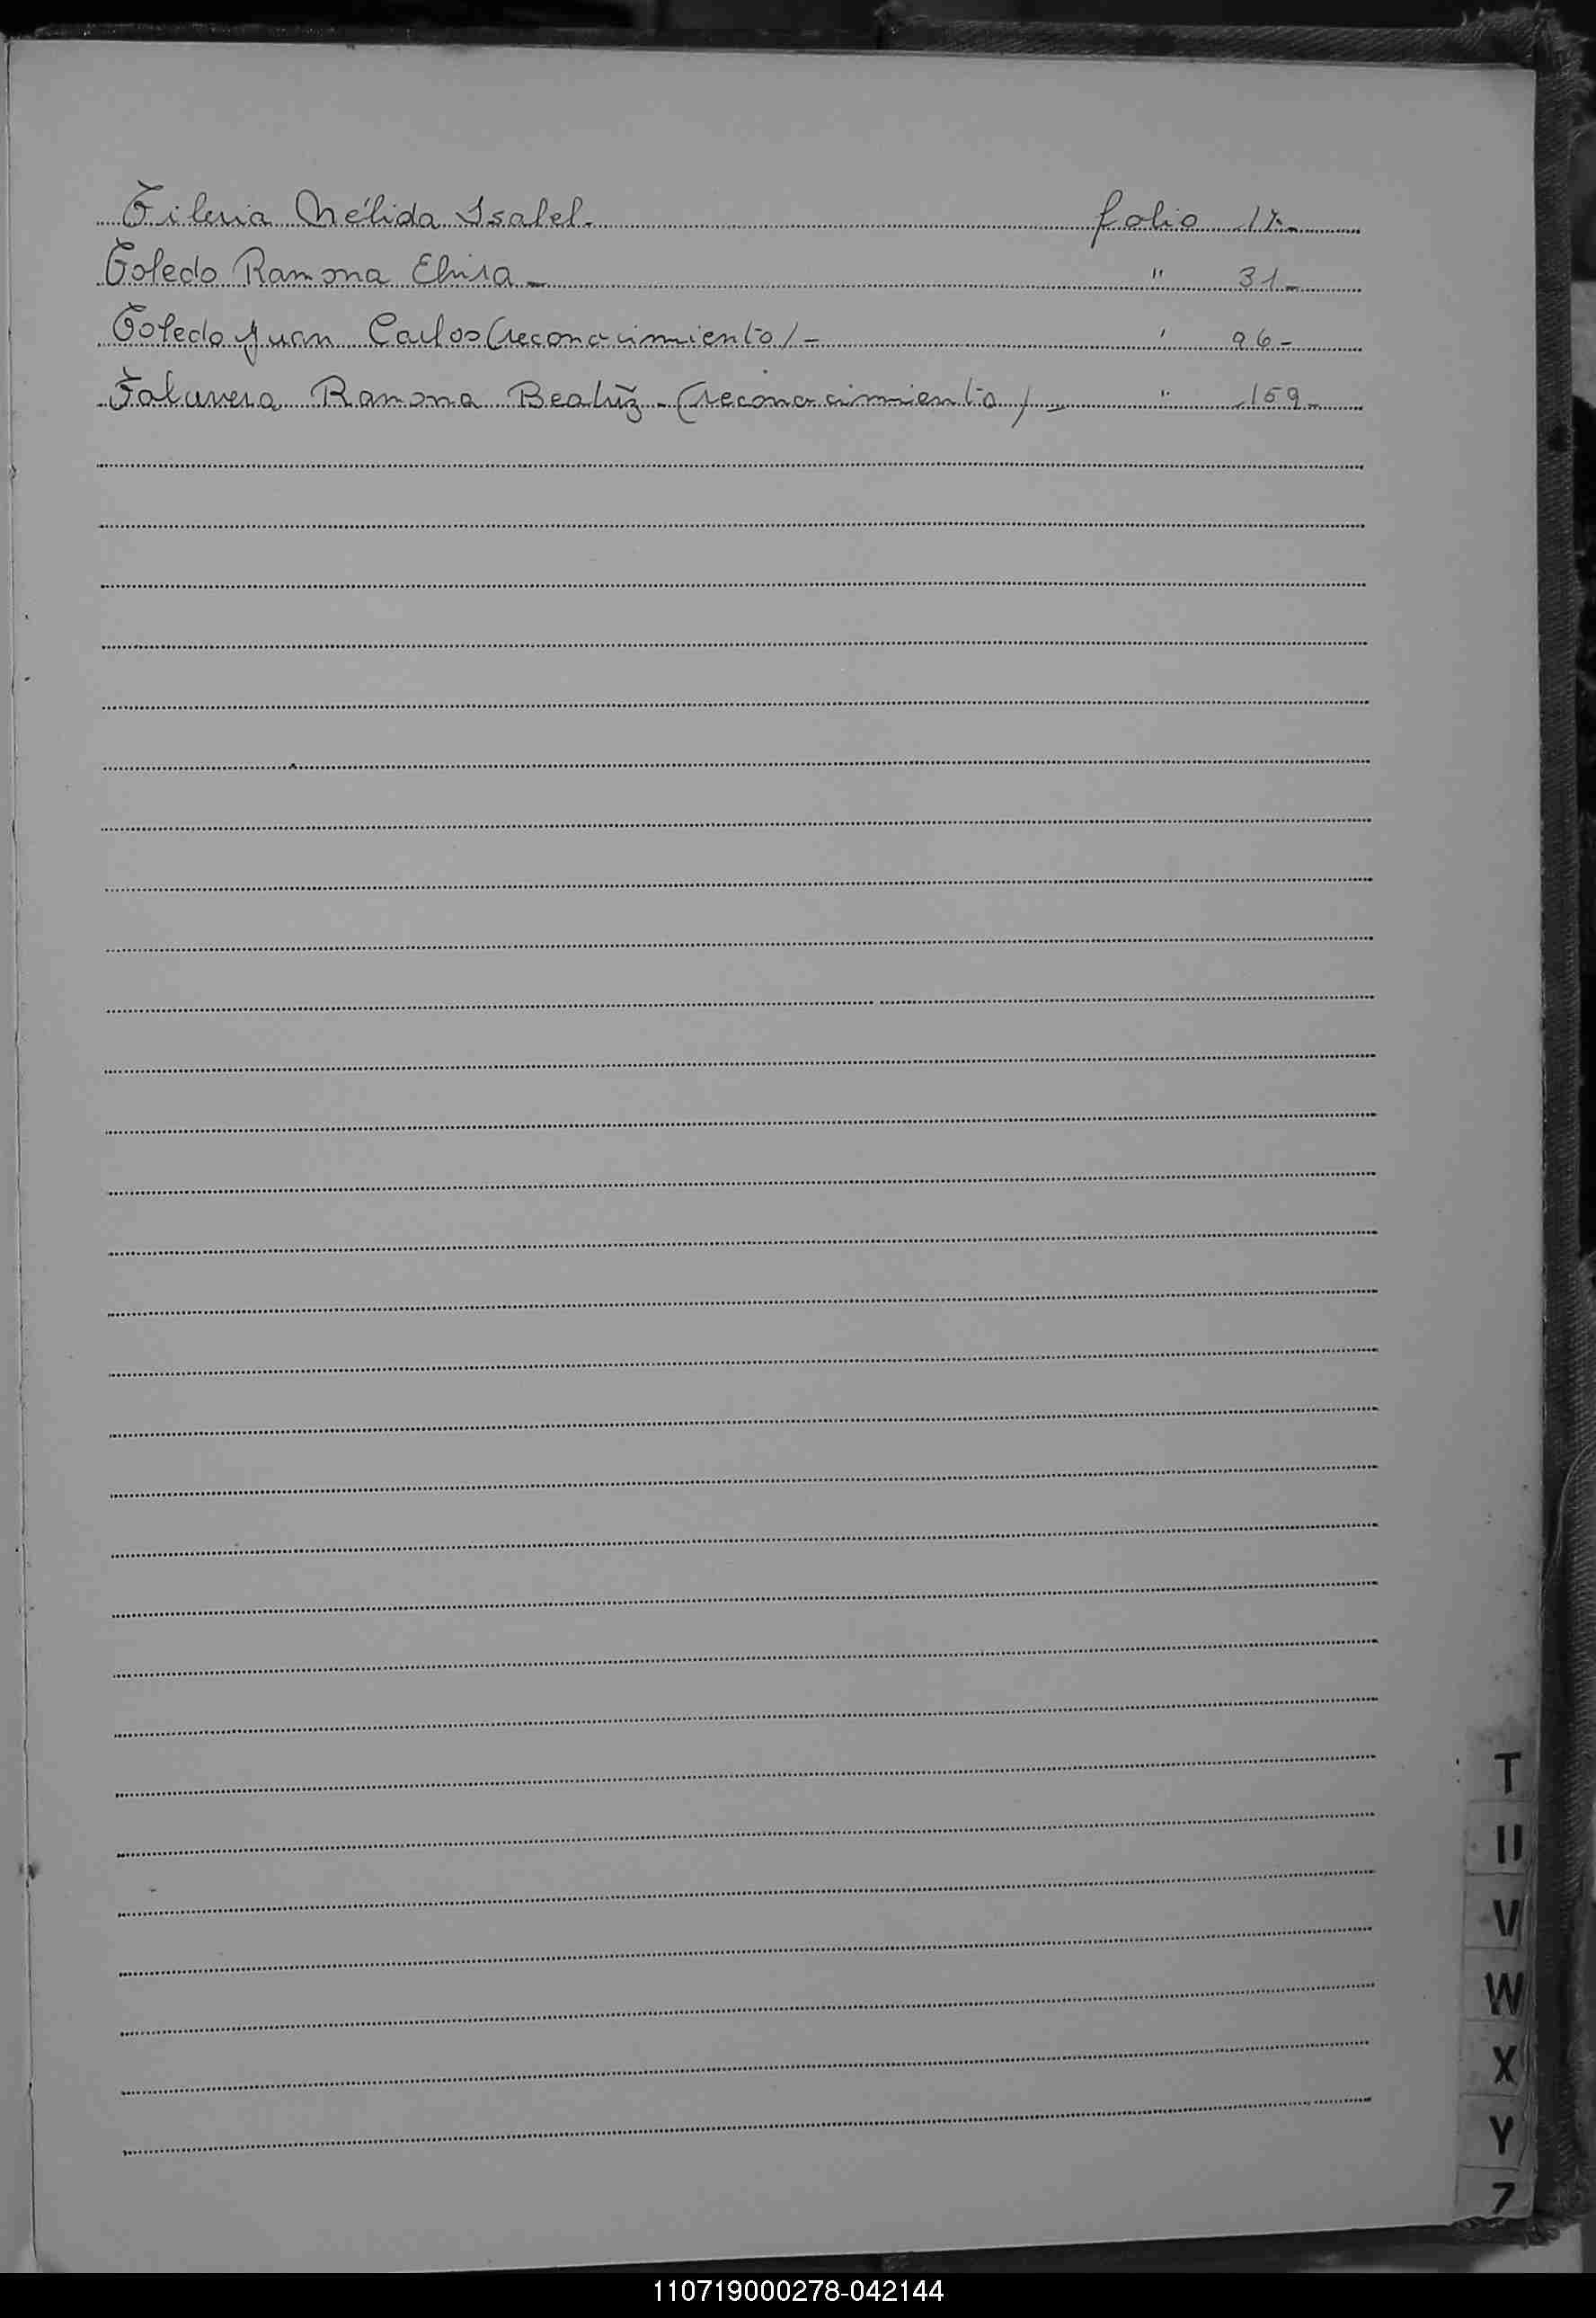 Tileria Nélida Isabel. folio 17-
Toledo Ramona Elvira - " 31-
Toledo Juan Carlos (reconocimiento) - " 96-
Talavera Ramona Beatriz - (reconocimiento) - " 159-
T
U
V
W
X
Y
Z
110719000278-042144